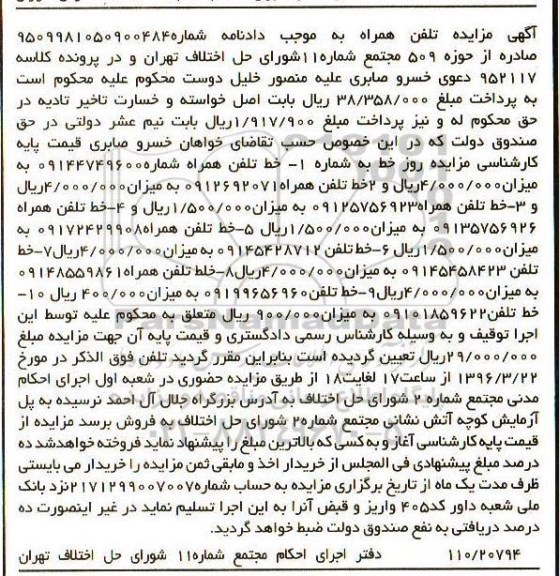 آگهی مزایده تلفن همراه به موجب دادنامه شماره۹۵۰۹۹۸۱۰۵۰۹۰۰۴۸۴
صادره از حوزه ۵۰۹ مجتمع شماره۱۱شورای حل اختلاف تهران و در پرونده کلاسه
۹۵۲۱۱۷ دعوی خسرو صابری علیه منصور خلیل دوست محکوم علیه محکوم است
به پرداخت مبلغ ۳۸/۳۵۸/۰۰۰ ریال بابت اصل خواسته و خسارت تاخیر تادیه در
حق محکوم له و نیز پرداخت مبلغ ۱/۹۱۷/۹۰۰ریال بابت نیم عشر دولتی در حق
صندوق دولت که در این خصوص حسب تقاضای خواهان خسرو صابری قیمت پایه
کارشناسی مزایده روز خط به شماره ۱- خط تلفن همراه شماره۰۹۱۴۴۷۴۹۶۰۰ به
میزان۴/۰۰۰/۰۰۰ریال و ۲خط تلفن همراه۰۹۱۲۶۹۲۰۷۱ به میزان۴/۰۰۰/۰۰۰ریال
و ۳-خط تلفن همراه۰۹۱۲۵۷۵۶۹۲۳ به میزان۱/۵۰۰/۰۰۰ریال و ۴-خط تلفن همراه
۰۹۱۳۵۷۵۶۹۲۶ به میزان۱/۵۰۰/۰۰۰ریال ۵-خط تلفن همراه۰۹۱۷۲۴۲۹۹۰۸ به
میزان۱/۵۰۰/۰۰۰ریال ۶-خط تلفن ۰۹۱۴۵۴۲۸۷۱۲ به میزان۴/۰۰۰/۰۰۰ریال۷-خط
تلفن ۰۹۱۴۵۴۵۸۴۲۳ به میزان۴/۰۰۰/۰۰۰ریال۸-خلط تلفن همراه۰۹۱۴۸۵۵۹۸۶۱
به میزان۴/۰۰۰/۰۰۰ریال۹-خط تلفن۰۹۱۹۹۶۵۶۹۶۰ به میزان۴۰۰/۰۰۰ ریال ۱۰-
خط تلفن۰۹۱۰۱۸۵۹۶۲۲ به میزان۹۰۰/۰۰۰ ریال متعلق به محکوم علیه توسط این
اجرا توقیف و به وسیله کارشناس رسمی دادگستری و قیمت پایه آن جهت مزایده مبلغ
۲۹/۰۰۰/۰۰۰ریال تعیین گردیده است بنابراین مقرر گردید تلفن فوق الذکر در مورخ
۱۳۹۶/۳/۲۲ از ساعت۱۷ لغایت۱۸ از طریق مزایده حضوری در شعبه اول اجرای احکام
مدنی مجتمع شماره ۲ شورای حل اختلاف به آدرس بزرگراه جلال آل احمد نرسیده به پل
آزمایش کوچه آتش نشانی مجتمع شماره۲ شورای حل اختلاف به فروش برسد مزایده از
قیمت پایه کارشناسی آغاز و به کسی که بالاترین مبلغ را پیشنهاد نماید فروخته خواهدشد ده
درصد مبلغ پیشنهادی فی المجلس از خریدار اخذ و مابقی ثمن مزایده را خریدار می بایستی
ظرف مدت یک ماه از تاریخ برگزاری مزایده به حساب شماره۲۱۷۱۲۹۹۰۰۷۰۰۷نزد بانک
ملی شعبه داور کد۴۰۵ واریز و قبض آنرا به این اجرا تسلیم نماید در غیر اینصورت ده
درصد دریافتی به نفع صندوق دولت ضبط خواهد گردید.
۱۱۰/۲۰۷۹۴ دفتر اجرای احکام مجتمع شماره۱۱ شورای حل اختلاف تهران